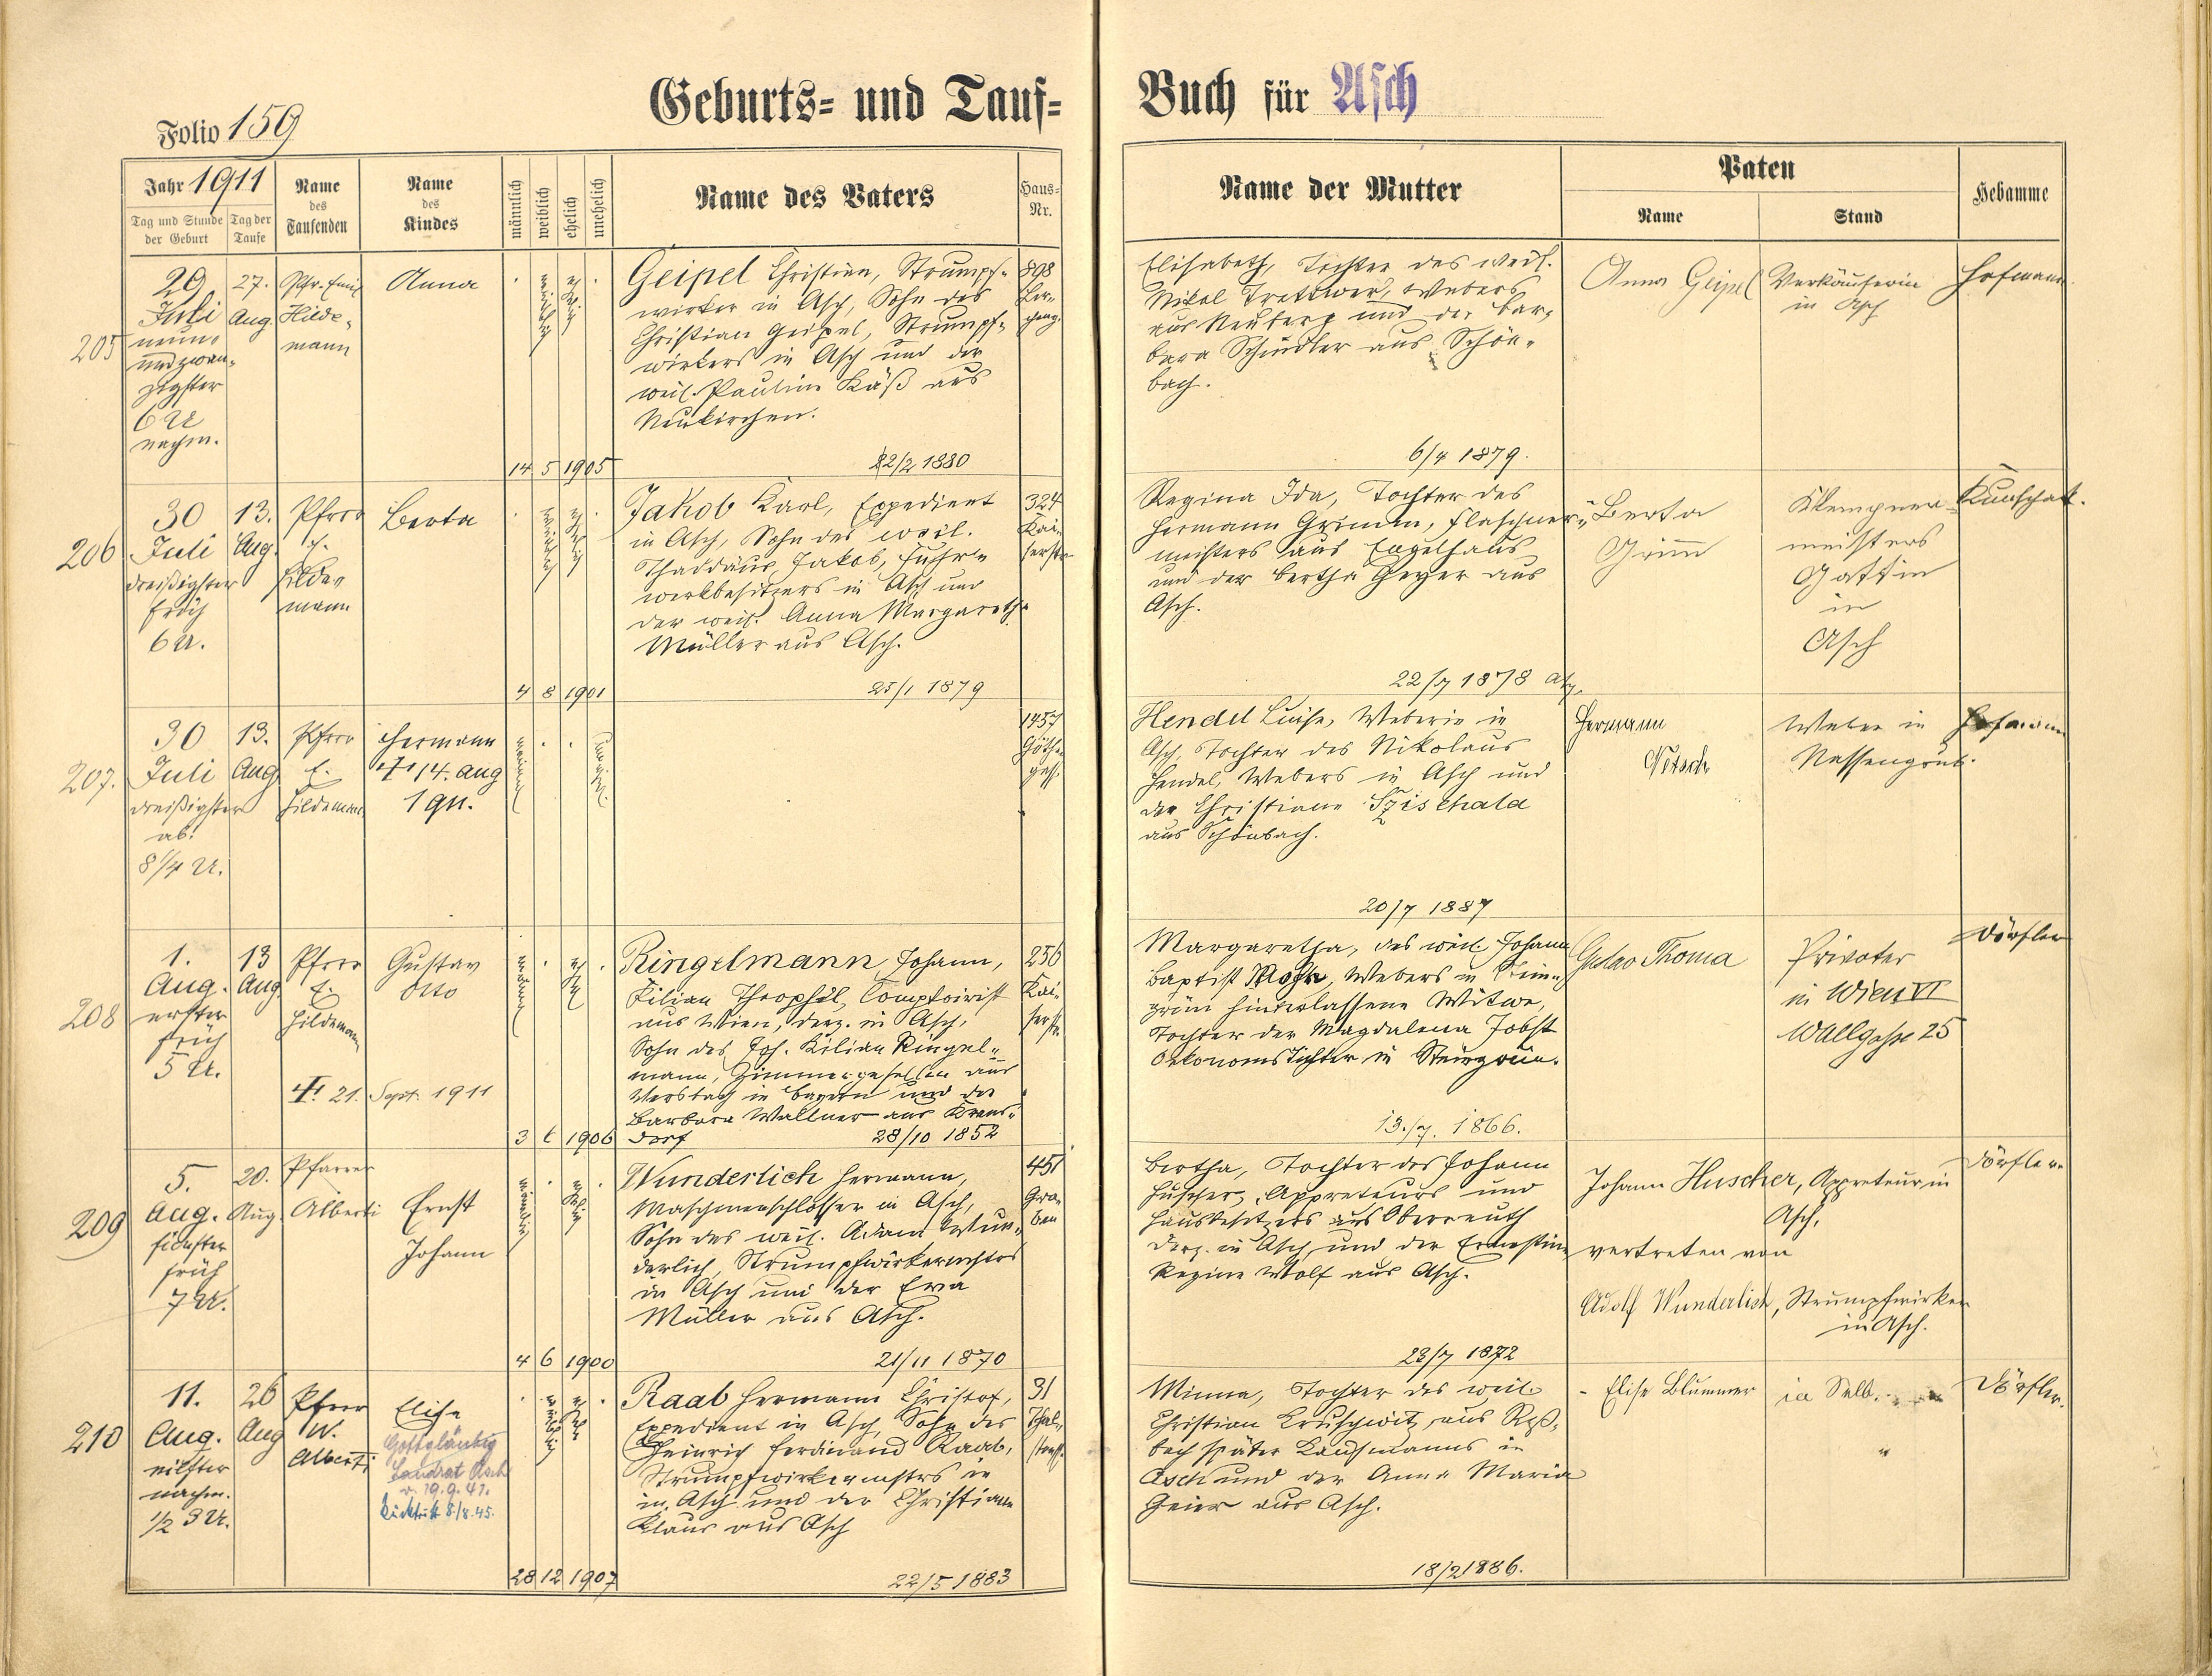 Geburts- und Tauf-
Buch für Asch
Folio 159
Jahr 1911
Tag und Stunde
der Geburt
Tag der
Taufe
Name
des
Taufenden
Name
des
Kindes
männlich
weiblich
ehelich
unehelich
Name des Vaters
Haus-
Nr.
Name der Mutter
Paten
Name
Stand
Hebamme
205
29
Juli
neun-
undzwan-
zigster
6 U
nachm.
27.
Aug.
Pfr. Emil
Hilde-
mann
Anna
weiblich
ehelich
14 5 1905
Geipel Christian, Strumpf-
wirker in Asch, Sohn des
Christian Geipel, Strumpf-
wirkers in Asch und der
weil. Pauline Käß aus
Neukirchen.
22/2 1880
898
Elisabeth, Tochter des weil.
Nikol Webers
aus Neuberg und der Bar-
bara Schindler aus Schön-
bach.
6/4 1879.
Anna Geipel
Verkäuferin
in Asch
Hofmann
206
30
Juli
dreißigster
früh
6 U.
13.
Aug.
Pfrer
E.
Hilde-
mann
Berta
weiblich
ehelich
4 8 1901
Jakob Karl, Expedient
in Asch, Sohn des weil.
Thaddäus Jakob, Fuhr-
werkbesitzers in Asch und
der weil. Anna Margareth
Müller aus Asch.
25/1 1879
324
Kai-
serstr.
Regina Ida, Tochter des
Hermann Grimm, Flaschner-
meisters aus Engelhaus
und der Bertha Geyer aus
Asch.
22/7 1878
Berta
Grimm
Klempner-
meisters
Gattin
in
Asch
207.
30
Juli
dreißigster
ab.
8 1/4 U.
13.
Aug
Pfrer
E.
Hildemann
Hermann
† 14. Aug
1911.
männlich
unehelich
1457
Göthe-
gasse
Hendel Luise, Weberin in
Asch, Tochter des Nikolaus
Hendel, Webers in Asch und
der Christiane
aus Schönbach.
20/7 1887
Hermann
Netsch
Weber in
Nassengrub.
Hofmann
208
1.
Aug.
erster
früh
5 U.
13
Aug.
Pfrer
E.
Hildemann
Gustav
Otto
†. 21. Sept. 1911
männlich
ehelich
3 6 1906
Ringelmann Johann,
Kilian Theophil, Comptoirist
aus Wien, derz. in Asch,
Sohn des Joh. Kilian Ringel-
mann, Zimmergesellen aus
in Bayern und der
Barbara Wallner aus
dorf
28/10 1852
256
Kai-
serstr.
Margaretha, des weil. Johann
Baptist Webers in Stein-
grün hinterlassene Witwe,
Tochter der Magdalena Jobst
Oekonomstochter in Steingrün.
13./7. 1866.
Gustav Thoma
Privater
in Wien VI
Wallgasse 25
Dörfler
209
5.
Aug.
fünfter
früh
7 U.
20.
Aug.
Pfarrer
Alberti
Ernst
Johann
männlich
ehelich
4 6 1900
Wunderlich Hermann,
Maschinenschlosser in Asch,
Sohn des weil. Adam Wun-
derlich, Strumpfwirkermstrs
in Asch und der Eva
Müller aus Asch.
21/11 1870
451
Gra-
ben
Bertha, Tochter des Johann
Huscher, Appreteurs und
Hausbesitzers aus Oberreuth
derz. in Asch und der Ernestine
Regine Wolf aus Asch.
23/7 1872
Johann Huscher, Appreteur in
Asch,
vertreten von
Adolf Wunderlich, Strumpfwirker
in Asch.
Dörfler
210
11.
Aug.
eilfter
nachm.
1/2 3 U.
26
Aug
Pfrer
W.
Alberti
Elise
Gottgläubig
Landrat Asch
v. 19.9.41.
Rücktritt 8/8.45.
weiblich
ehelich
28 12 1907
Raab Hermann Christof,
Expedient in Asch, Sohn des
Heinrich Ferdinand Raab,
Strumpfwirkermstrs in
in Asch und der Christiane
Klaus aus Asch
22/5 1883
31
Thal-
strass.
Minna, Tochter des weil.
Christian Kruschwitz aus Roß-
bach später Kaufmanns in
Asch und der Anna Maria
Geier aus Asch.
18/2 1886.
- Elise Blümmer
in Selb.
Dörfler.